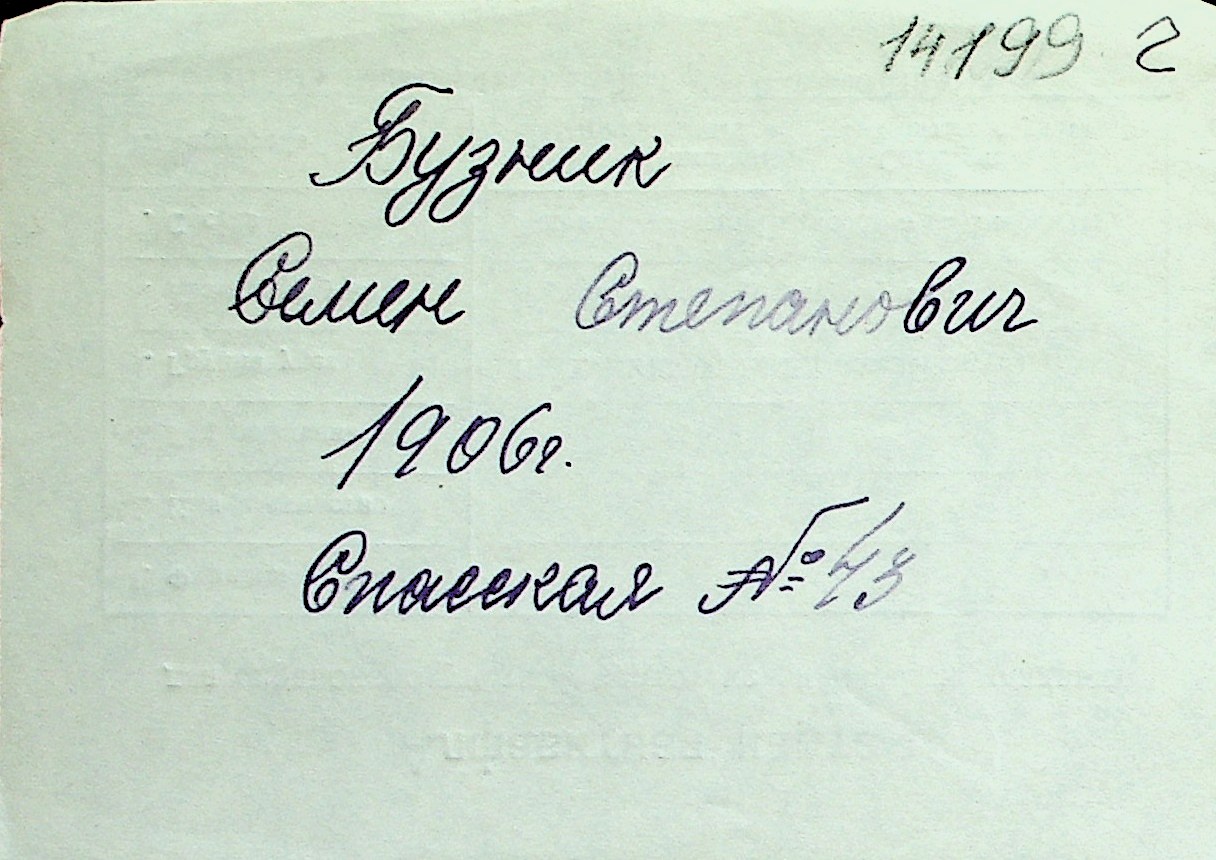 14199 г
Бузник
Семен Степанович
1906г.
Спасская № 43